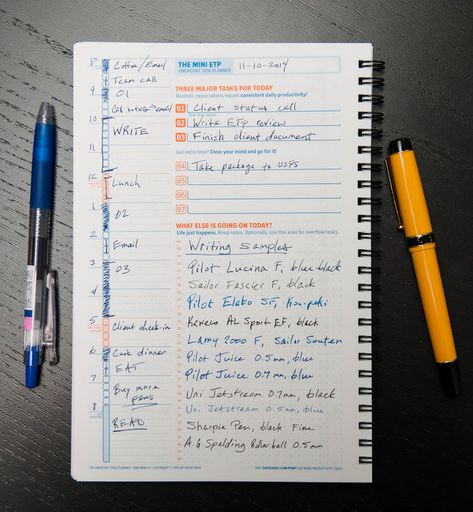 THE MINI ETP
EMERGENT TASK PLANNER
11-10-2014
8 Coffee/Email
Team call
9 01
Call notes → email
10
WRITE
11
12 Lunch
1
02
2
Email
3 03
4
5 Client check-in
6 Cook dinner
EAT
7
Buy more
pens
8
READ
THREE MAJOR TASKS FOR TODAY
Realistic expectations equals consistent daily productivity!
01 Client status call
02 Write ETP review
03 Finish client document
Got extra time? Clear your mind and go for it!
04 Take package to USPS
05
06
07
WHAT ELSE IS GOING ON TODAY?
Life just happens. Keep notes. Optionally, use this area for overflow tasks.
Writing Samples
Pilot Lucina F, blue black
Sailor Fascier F, black
Pilot Elabo SF, Kon-peki
Kaweco AL Sport EF, black
Lamy 2000 F, Sailor Souten
Pilot Juice 0.5mm, blue
Pilot Juice 0.7mm, blue
Uni Jetstream 0.7mm, black
Uni Jetstream 0.5mm, blue
Sharpie Pen, black Fine
A.G. Spalding Rollerball 0.5mm